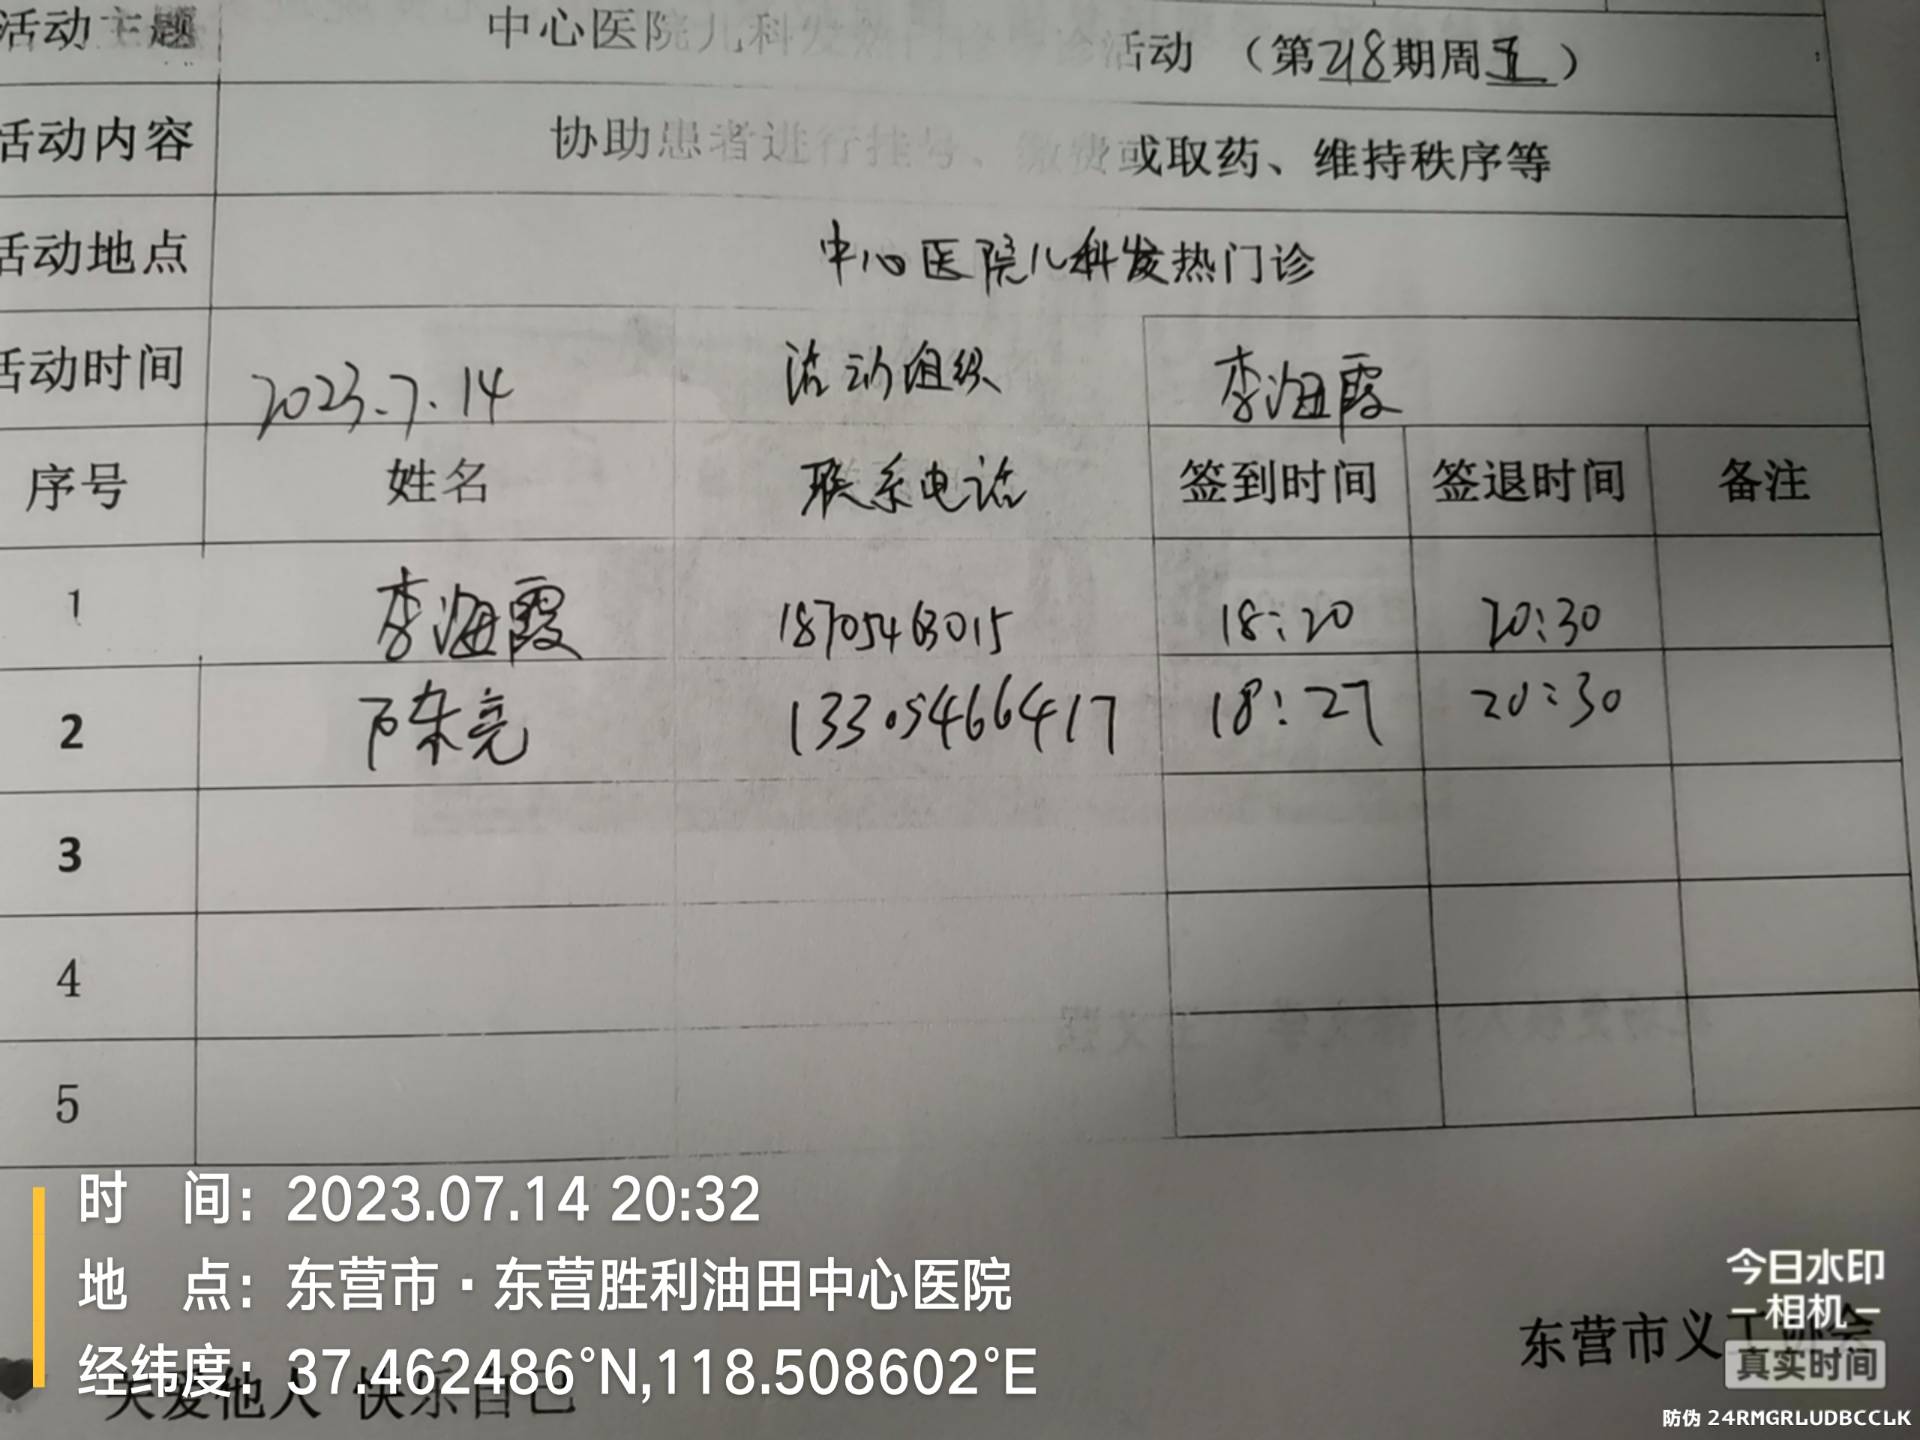 活动主题 中心医院儿科发热门诊 活动 （第218期周五）
活动内容 协助患者进行挂号、缴费或取药、维持秩序等
活动地点 中心医院儿科发热门诊
活动时间 2023.7.14 活动组织 李海霞
序号 姓名 联系电话 签到时间 签退时间 备注
1 李海霞 18705463015 18:20 20:30
2 陈亮 13305466417 18:27 20:30
3
4
5
时 间：2023.07.14 20:32
地 点：东营市·东营胜利油田中心医院
经纬度：37.462486°N,118.508602°E
关爱他人 快乐自己
东营市义工协会
今日水印
相机
真实时间
防伪 24RMGRLUDBCCLK